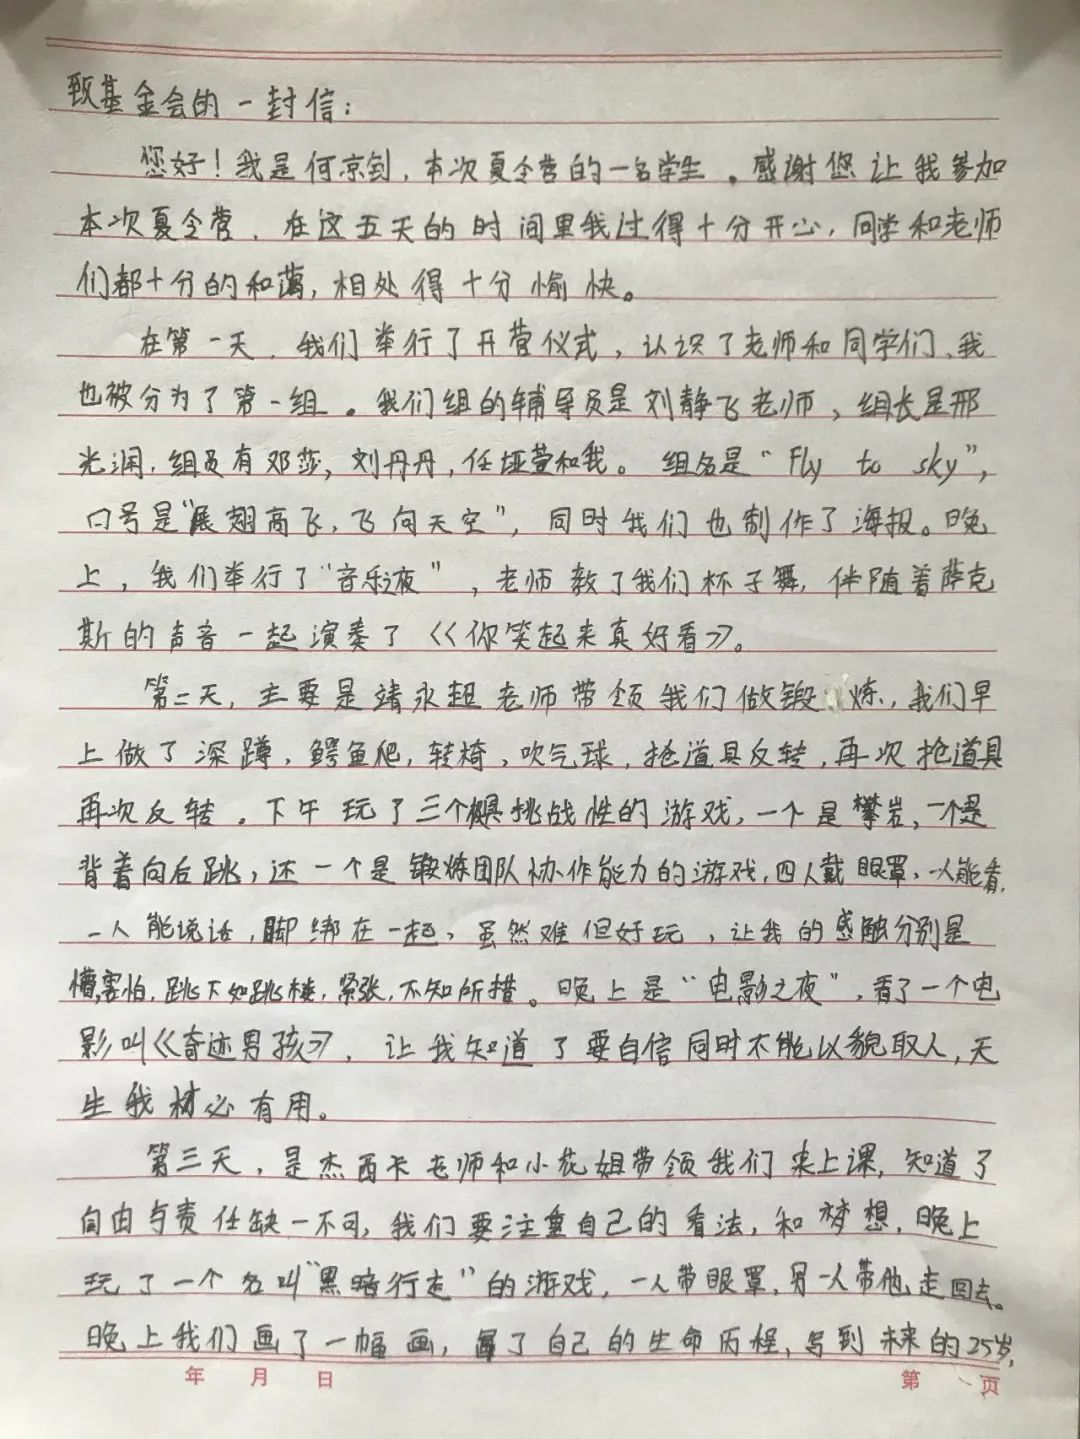 致基金会的一封信：
您好！我是何京钊，本次夏令营的一名学生。感谢您让我参加
本次夏令营，在这五天的时间里我过得十分开心，同学和老师
们都十分的和蔼，相处得十分愉快。
在第一天，我们举行了开营仪式，认识了老师和同学们、我
也被分为了第一组。我们组的辅导员是刘静飞老师，组长是邢
光润，组员有邓莎，刘丹丹，任垭萱和我。组名是“Fly to sky”，
口号是“展翅高飞，飞向天空”，同时我们也制作了海报。晚
上，我们举行了“音乐夜”，老师教了我们杯子舞，伴随着萨克
斯的声音一起演奏了《你笑起来真好看》。
第二天，主要是靖永超老师带领我们做锻炼，我们早
上做了深蹲，鳄鱼爬，转椅，吹气球，抢道具反转，再次抢道具
再次反转。下午玩了三个极具挑战性的游戏，一个是攀岩，一个是
背着向后跳，还一个是锻炼团队协作能力的游戏，四人戴眼罩，一人能看，
一人能说话，脚绑在一起，虽然难但好玩，让我的感触分别是
懵，害怕，跳下如跳楼，紧张，不知所措。晚上是“电影之夜”，看了一个电
影叫《奇迹男孩》，让我知道了要自信同时不能以貌取人，天
生我材必有用。
第三天，是杰西卡老师和小花姐带领我们来上课，知道了
自由与责任缺一不可，我们要注重自己的看法，和梦想，晚上
玩了一个名叫“黑暗行走”的游戏，一人带眼罩，另一人带他走回去。
晚上我们画了一幅画，写了自己的生命历程，写到未来的25岁，
年 月 日 第 页